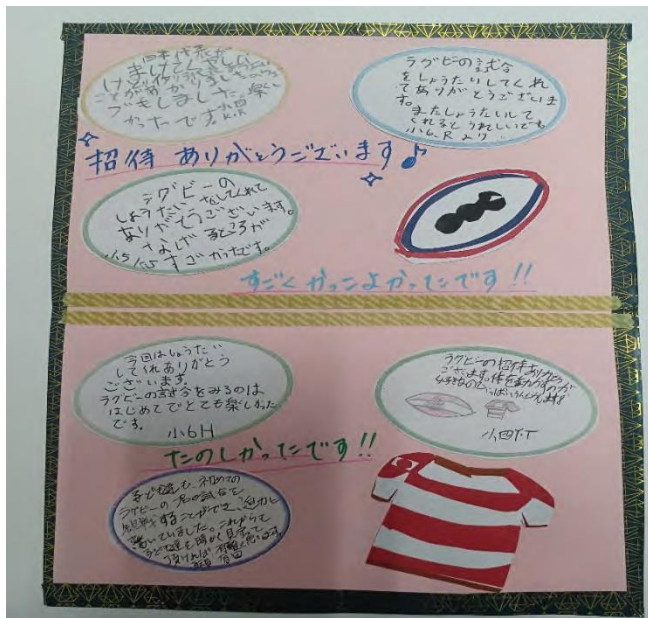 日本代表が
ことがわかりました。楽し
かったです。小四
K.R
ラグビーの試合
をしょうたいしてくれ
てありがとうございま
す。
またしょうたいして
くれるとうれしいです
小6.Rより
招待 ありがとうございます♪
ラグビーの
しょうたいをしてくれて
ありがとうございます。
なげるところが
すごかったです。
小5
すごくかっこよかったです!!
今回はしょうたい
してくれありがとう
ございます。
ラグビーの試合をみるのは
はじめてでとても楽しかった
です。
小6H
ラグビーの招待ありがとう
ございます。体を動かすのが
小四T.T
たのしかったです!!
子ども達も、初めての
ラグビーの
観戦することができ、迫力に
驚いていました。これからも
子ども達を暖かく見守って
頂ければ有難く思います。